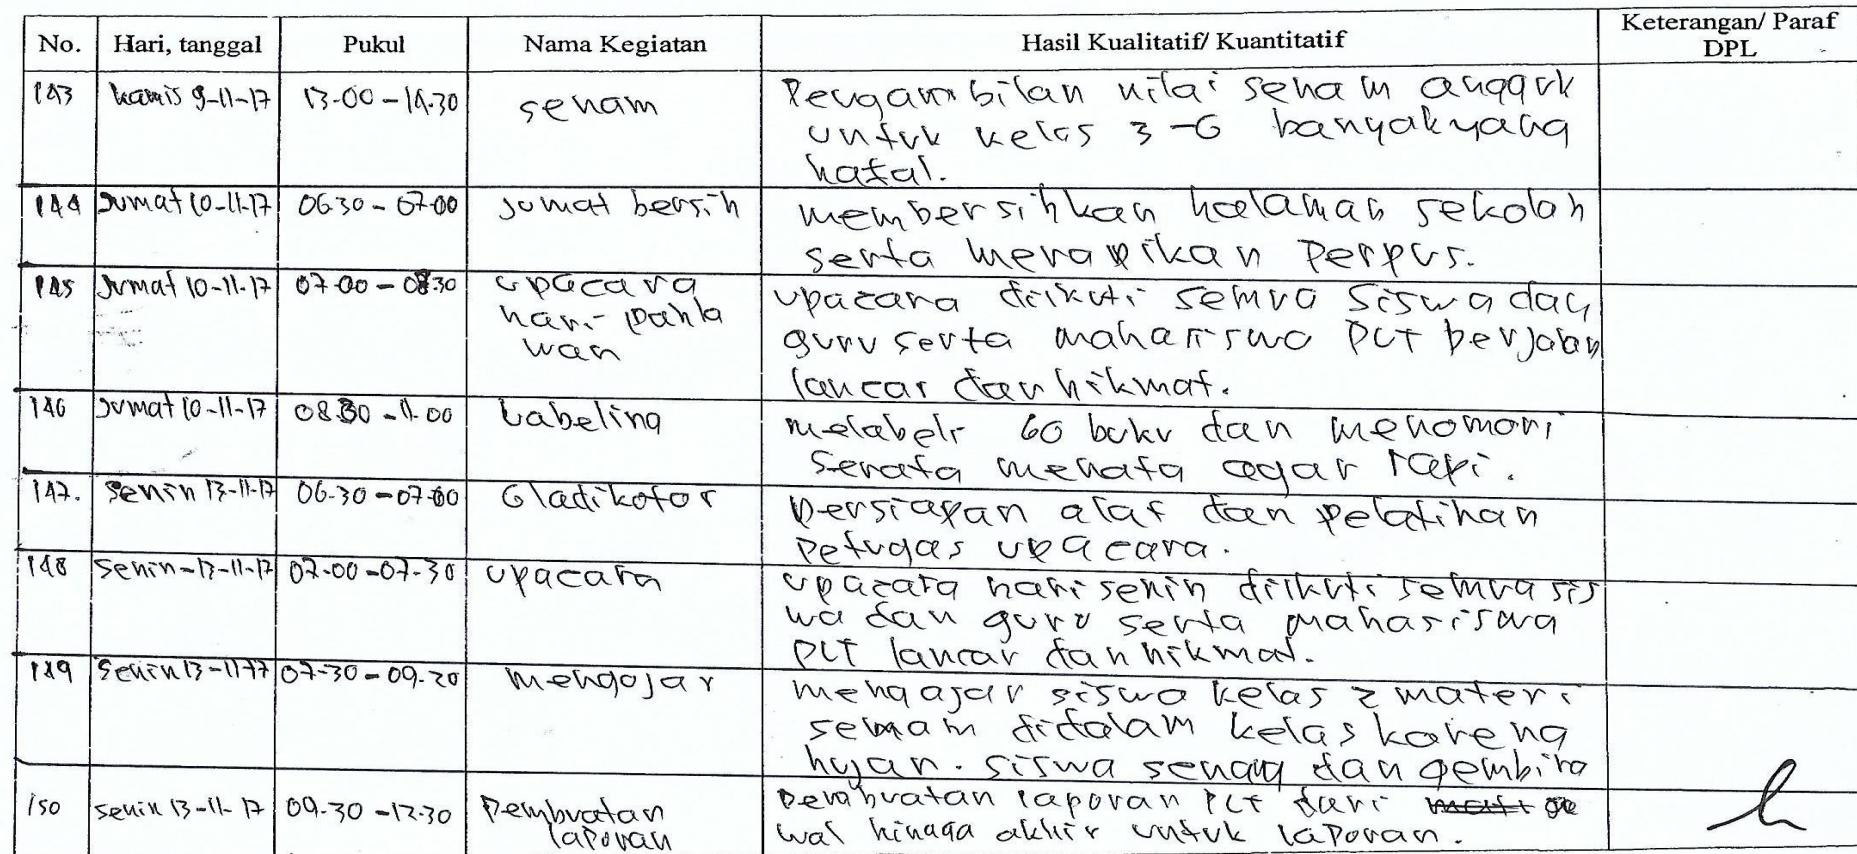 No. Hari, tanggal Pukul Nama Kegiatan Hasil Kualitatif/ Kuantitatif Keterangan/ Paraf DPL
143 kamis 9-11-17 13.00 - 14.30 senam Pengambilan nilai senam anggrk
untuk kelas 3-6 banyak yang
hafal.
144 Jumat 10-11-17 06.30 - 07.00 Jumat bersih membersihkan halaman sekolah
serta merapikan Perpus.
145 Jumat 10-11-17 07.00 - 08.30 upacara upacara diikuti semua siswa dan
hari pahla guru serta mahasiswa PLT berjalan
wan lancar dan hikmat.
146 Jumat 10-11-17 08.30 - 11.00 Labeling melabeli 60 buku dan menomori
serata menata agar rapi.
147. Senin 13-11-17 06.30 - 07.00 Gladikotor persiapan alat dan pelatihan
Petugas upacara.
148 Senin-13-11-17 07.00 - 07.30 upacara upacara hari senin diikuti semua sis
wa dan guru serta mahasiswa
PLT lancar dan hikmat.
149 Senin 13-1177 07.30 - 09.20 mengajar mengajar siswa kelas 2 materi
senam didalam kelas karena
hujan. siswa senang dan gembira
150 Senin 13-11-17 09.30 - 12.30 Pembuatan Pembuatan laporan PLT dari
laporan wal hingga akhir untuk laporan.